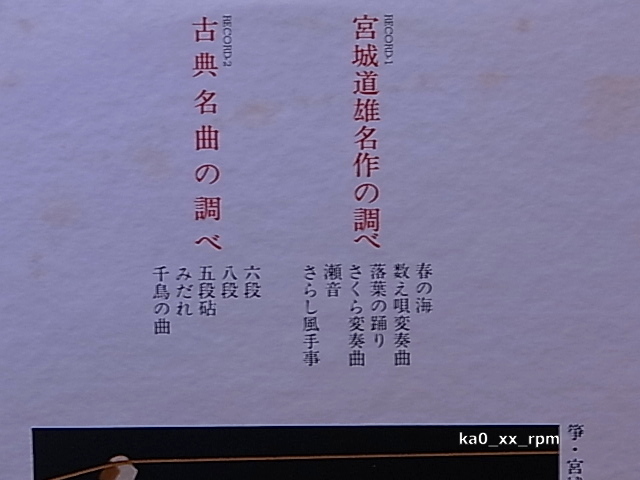 RECORD-1
宮城道雄名作の調べ
春の海
数え唄変奏曲
落葉の踊り
さくら変奏曲
瀬音
さらし風手事
RECORD-2
古典名曲の調べ
六段
八段
五段砧
みだれ
千鳥の曲
箏・宮城
ka0_xx_rpm